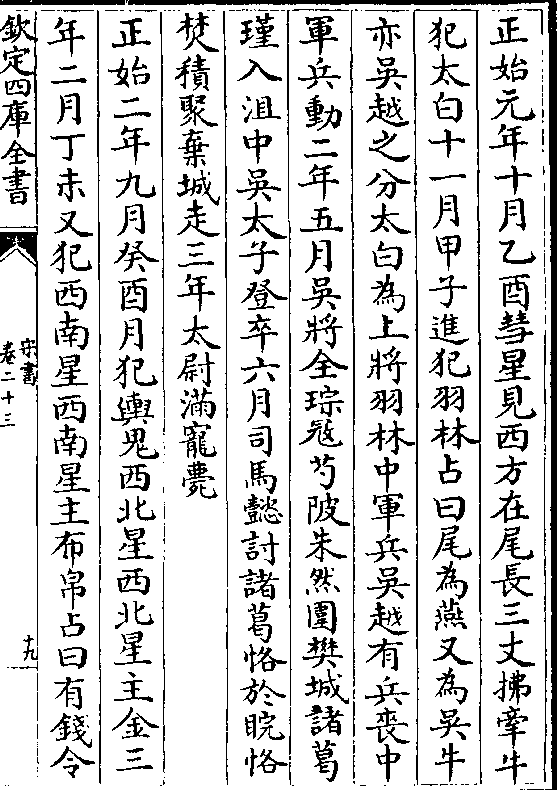 正始元年十月乙酉彗星見西方在尾長三丈拂牽牛
犯太白十一月甲子進犯羽林占曰尾為燕又為吳牛
亦吳越之分太白為上將羽林中軍兵吳越有兵喪中
軍兵動二年五月吳將全琮寇芍陂朱然圍樊城諸葛
瑾入沮中吳太子登卒六月司馬懿討諸葛恪於皖恪
焚積聚棄城走三年太尉滿寵薨
正始二年九月癸酉月犯輿鬼西北星西北星主金三
年二月丁未又犯西南星西南星主布帛占曰有錢令
欽定四庫全書
宋書
卷二十三
十九